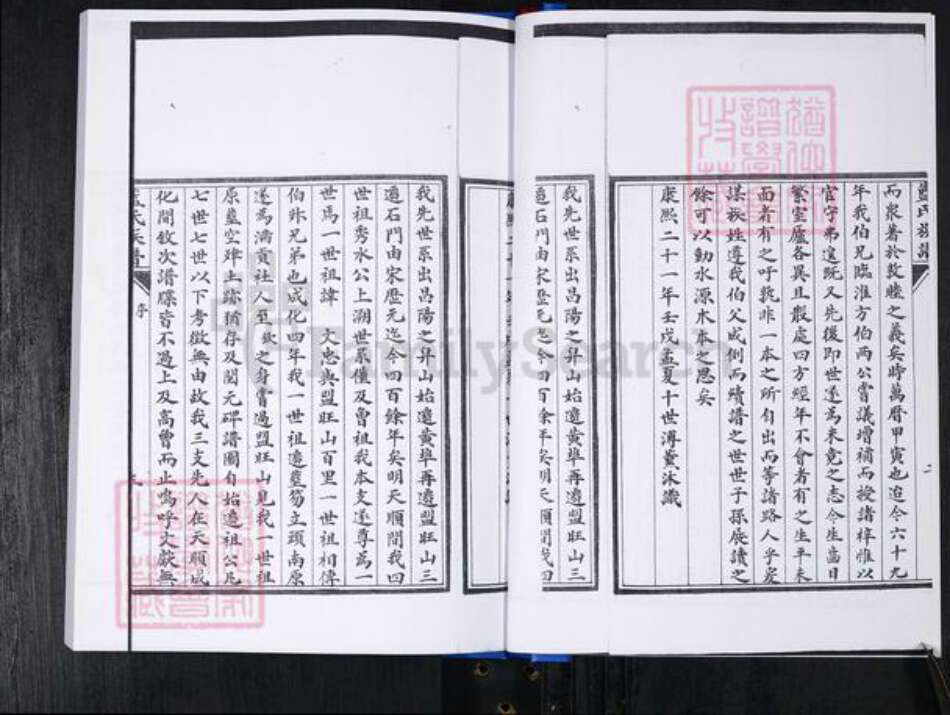 而泉著於敦睦之義矣時萬曆甲寅也迨今六十九
年我伯兄臨淮方伯兩公嘗議增補而授諸梓惟以
官守弗遑既又先後即世遂為未竟之志今生齒日
繁室廬各異且散處四方經年不會者有之生平未
面者有之呼孰非一本之所自出而等諸路人乎爰
謀族姓遵我伯父成例而續譜之世世子孫展讀之
餘可以動水源木本之思矣
康熙二十一年壬戌孟夏十世溥薰沐識
我先世系出昌陽之昇山始遷黃埠再遷盟旺山三
遷石門由宋歷元迄今四百餘年矣明天順間我四
我先世系出昌陽之昇山始遷黃埠再遷盟旺山三
遷石門由宋歷元迄今四百餘年矣明天順間我四
世祖秀水公上溯世系僅及曾祖我本支遂尊為一
世焉一世祖諱 文忠與盟旺山百里一世祖相傳
伯叔兄弟也成化四年我一世祖遷墓笏立頭南原
遂為濤貢社人至欽之身嘗過盟旺山見我一世祖
原墓空竁上跡猶存及閱元碑譜圖自始遷祖公凡
七世七世以下考徵無由故我三支先人在天順成
化間敘次譜牒皆不過上及高曾而止嗚呼文獻無
氏族譜
序
FamilySearch